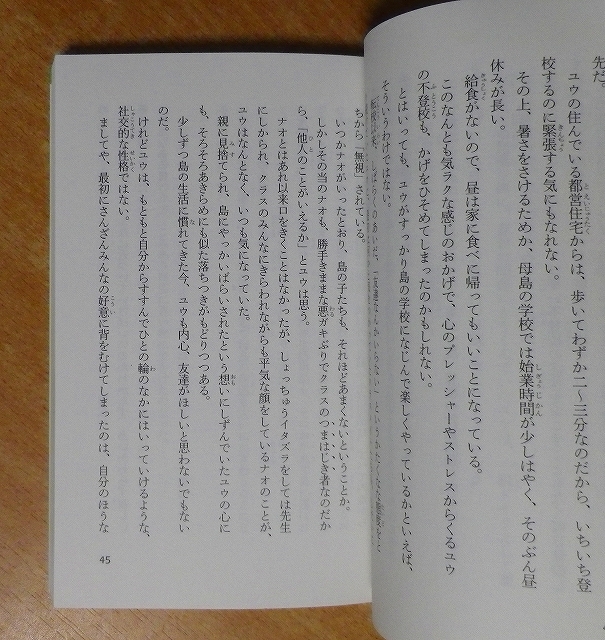 先だ。
ユウの住んでいる都営住宅からは、歩いてわずか二〜三分なのだから、いちいち登
校するのに緊張する気にもなれない。
その上、暑さをさけるためか、母島の学校では始業時間が少しはやく、そのぶん昼
休みが長い。
給食がないので、昼は家に食べに帰ってもいいことになっている。
このなんとも気ラクな感じのおかげで、心のプレッシャーやストレスからくるユウ
の不登校も、かげをひそめてしまったのかもしれない。
とはいっても、ユウがすっかり島の学校になじんで楽しくやっているかといえば、
そういうわけではない。
ちから「無視」されている。
いつかナオがいったとおり、島の子たちも、それほどあまくないということか。
しかしその当のナオも、勝手きままな悪ガキぶりでクラスのつまはじき者なのだか
ら、「他人のことがいえるか」とユウは思う。
ナオとはあれ以来口をきくことはなかったが、しょっちゅうイタズラをしては先生
にしかられ、クラスのみんなにきらわれながらも平気な顔をしているナオのことが、
ユウはなんとなく、いつも気になっていた。
親に見捨てられ、島にやっかいばらいされたという想いにしずんでいたユウの心に
も、そろそろあきらめにも似た落ちつきがもどりつつある。
少しずつ島の生活に慣れてきた今、ユウも内心、友達がほしいと思わないでもない
のだ。
けれどユウは、もともと自分からすすんでひとの輪のなかにはいっていけるような、
社交的な性格ではない。
ましてや、最初にさんざんみんなの好意に背をむけてしまったのは、自分のほうな
45